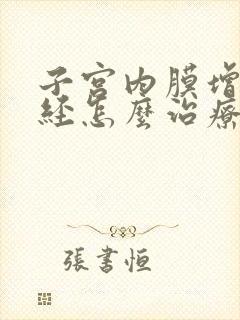 子宫内膜增
经怎麽治療
張書恒